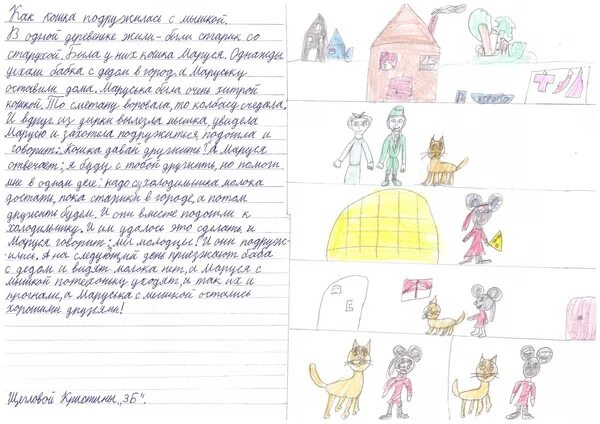 Как кошка подружилась с мышкой.
В одной деревеньке жили-были старик со
старухой. Была у них кошка Маруся. Однажды
уехали бабка с дедом в город, а Маруську
оставили дома. Маруська была очень хитрой
кошкой. То сметану воровала, то колбасу съедала.
И вдруг из дырки вылезла мышка, увидела
Марусю и захотела подружится, подошла и
говорит: Кошка давай дружить? а Маруся
отвечает: я буду с тобой дружить, но помоги
мне в одном деле: надо с холодильника молока
достать, пока старики в городе, а потом
дружить будем. И они вместе подошли к
холодильнику. И им удалось это сделать и
Маруся говорит: мы молодцы! И они подруж-
ились. А на следующий день приезжают баба
с дедом и видят молока нет, а Маруся с
мышкой потехоньку уходят, и так их и
прогнали, а Маруська с мышкой остались
хорошими друзьями!
Щегловой Кристины „3Б".